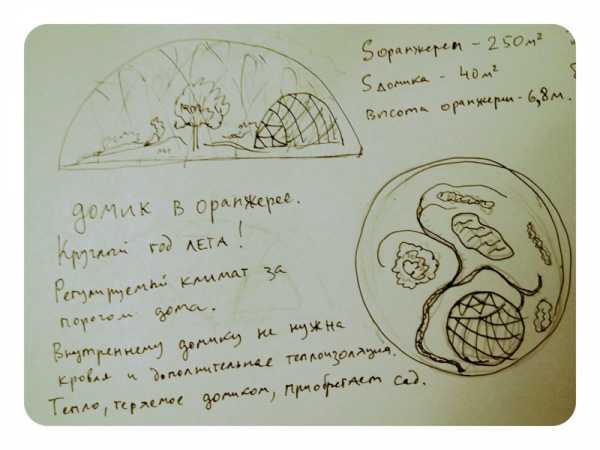 Sоранжереи - 250 м²
Sдомика - 40 м²
Высота оранжереи - 6,8 м.
домик в оранжерее.
Круглый год ЛЕТА!
Регулируемый климат за
порогом дома.
Внутреннему домику не нужна
кровля и дополнительная теплоизоляция.
Тепло, теряемое домиком, приобретает сад.